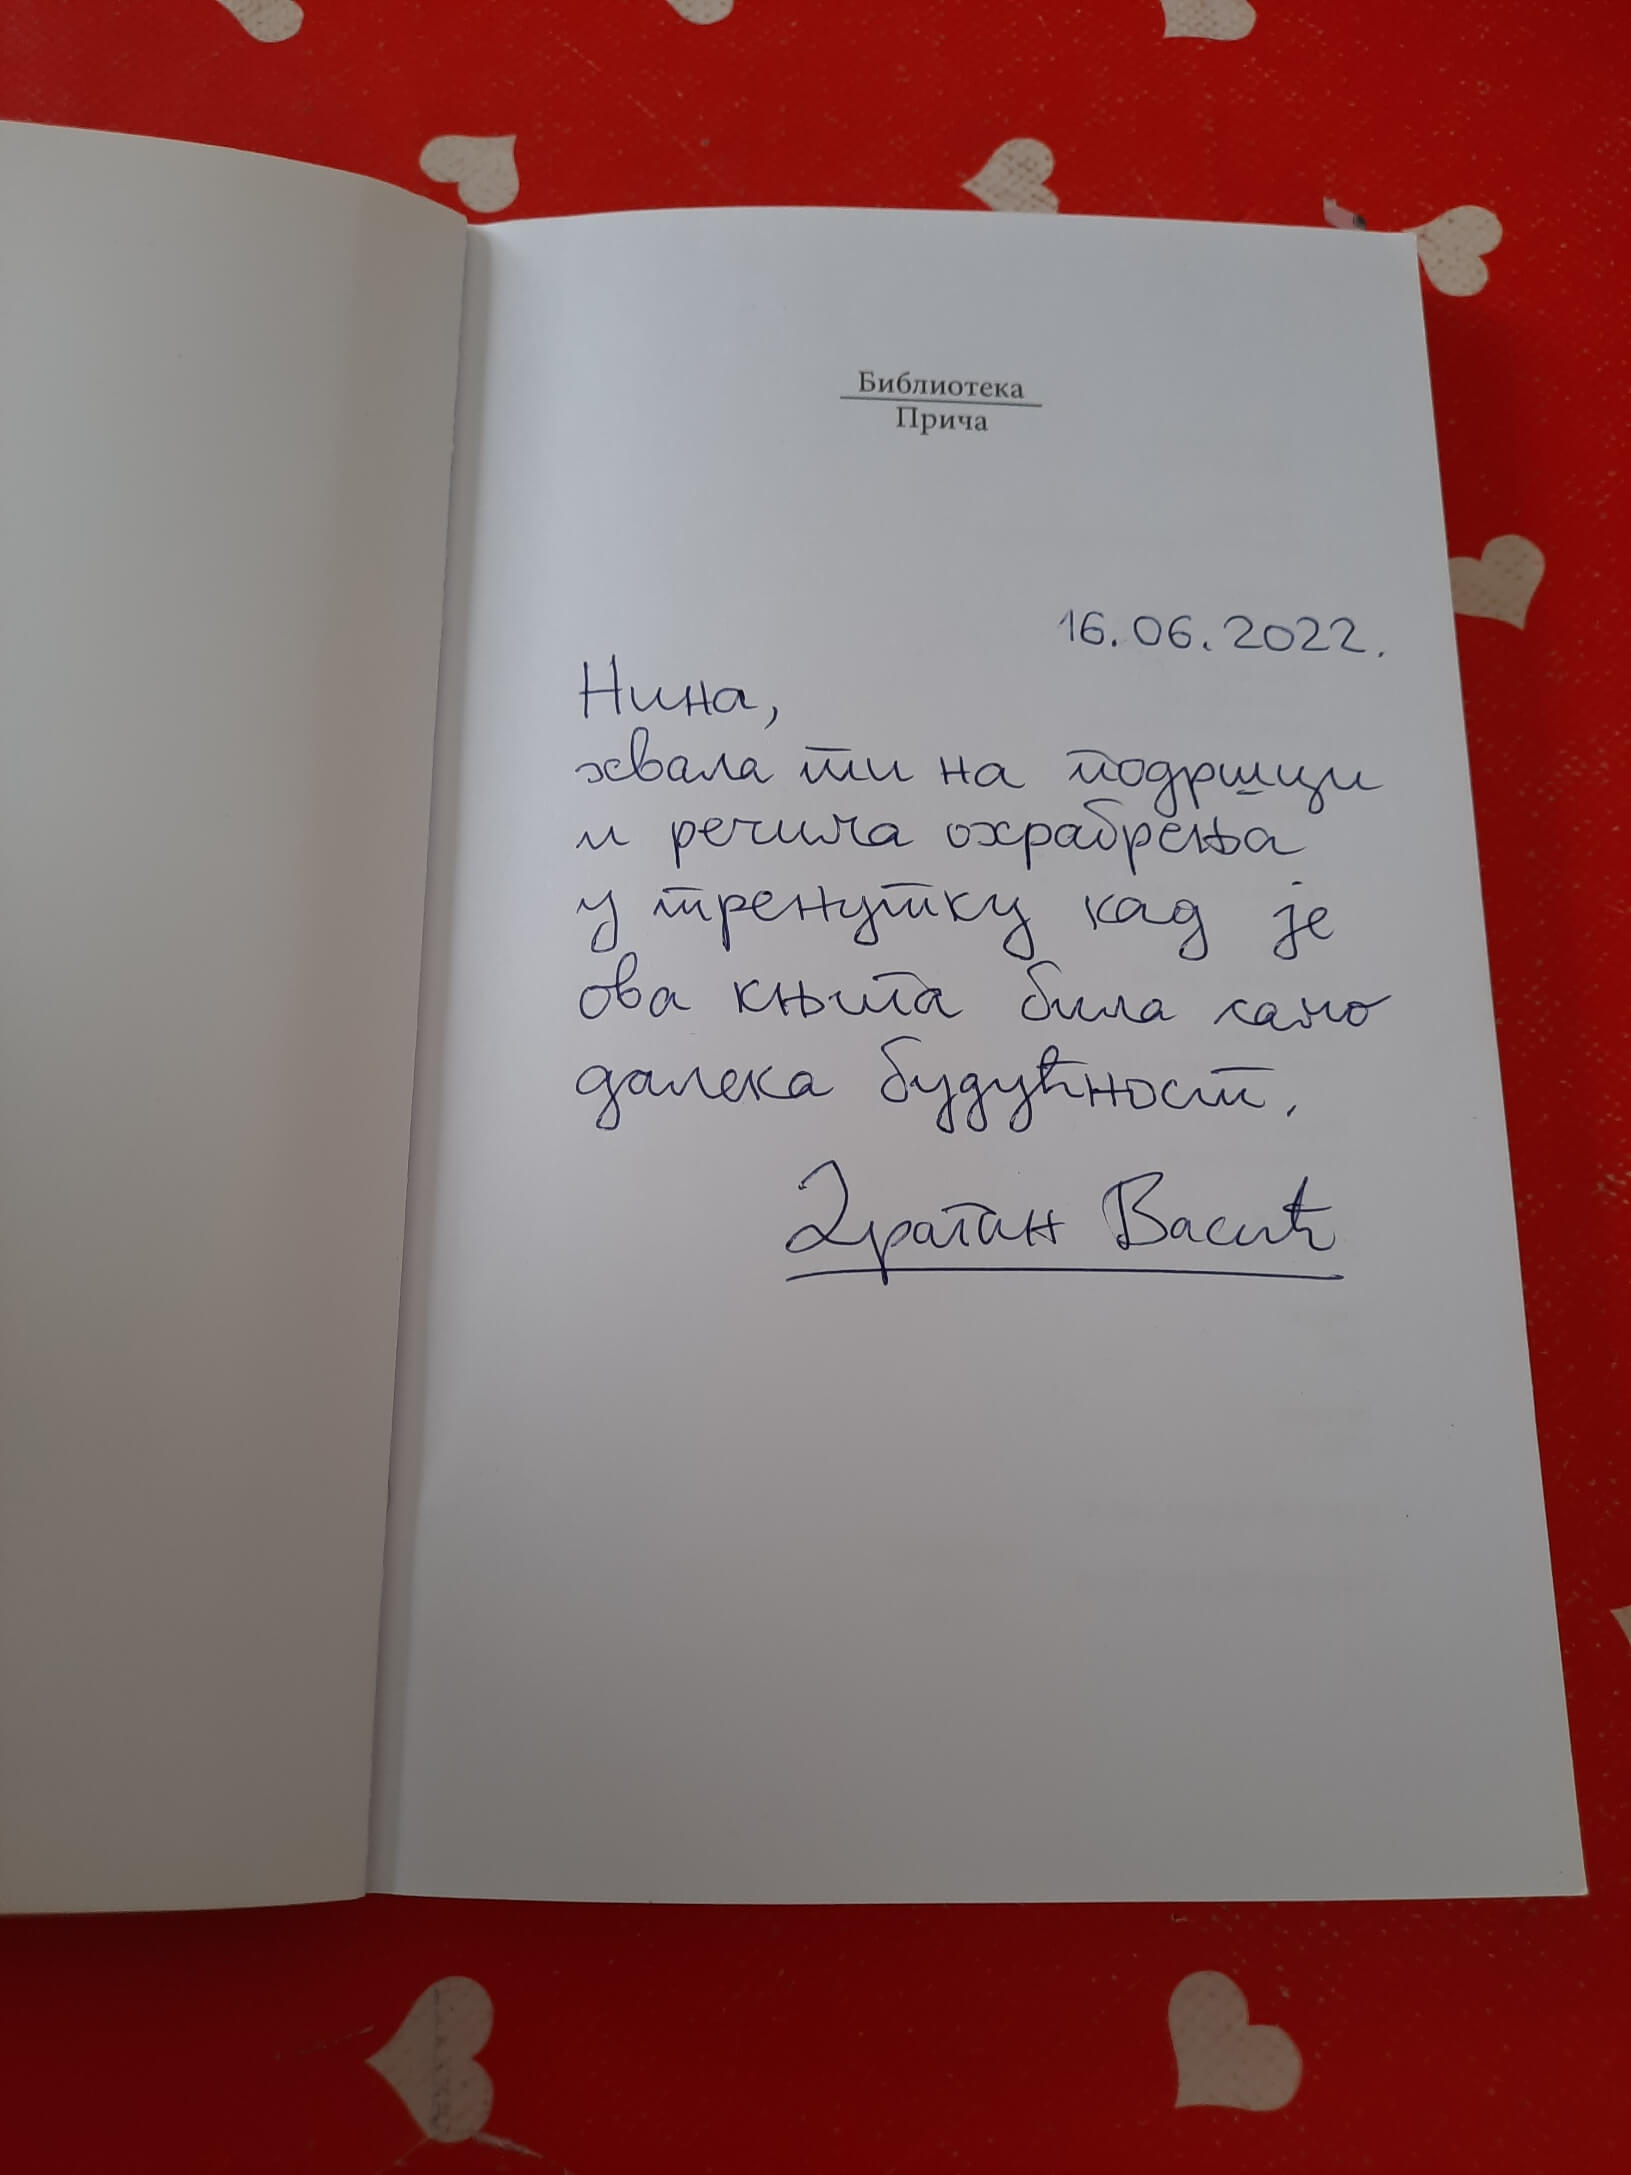 Библиотека
Прича
16.06.2022.
Нина,
хвала ти на подршци
и речима охрабрења
у тренутку кад је
ова књига била само
далека будућност.
Драган Васић